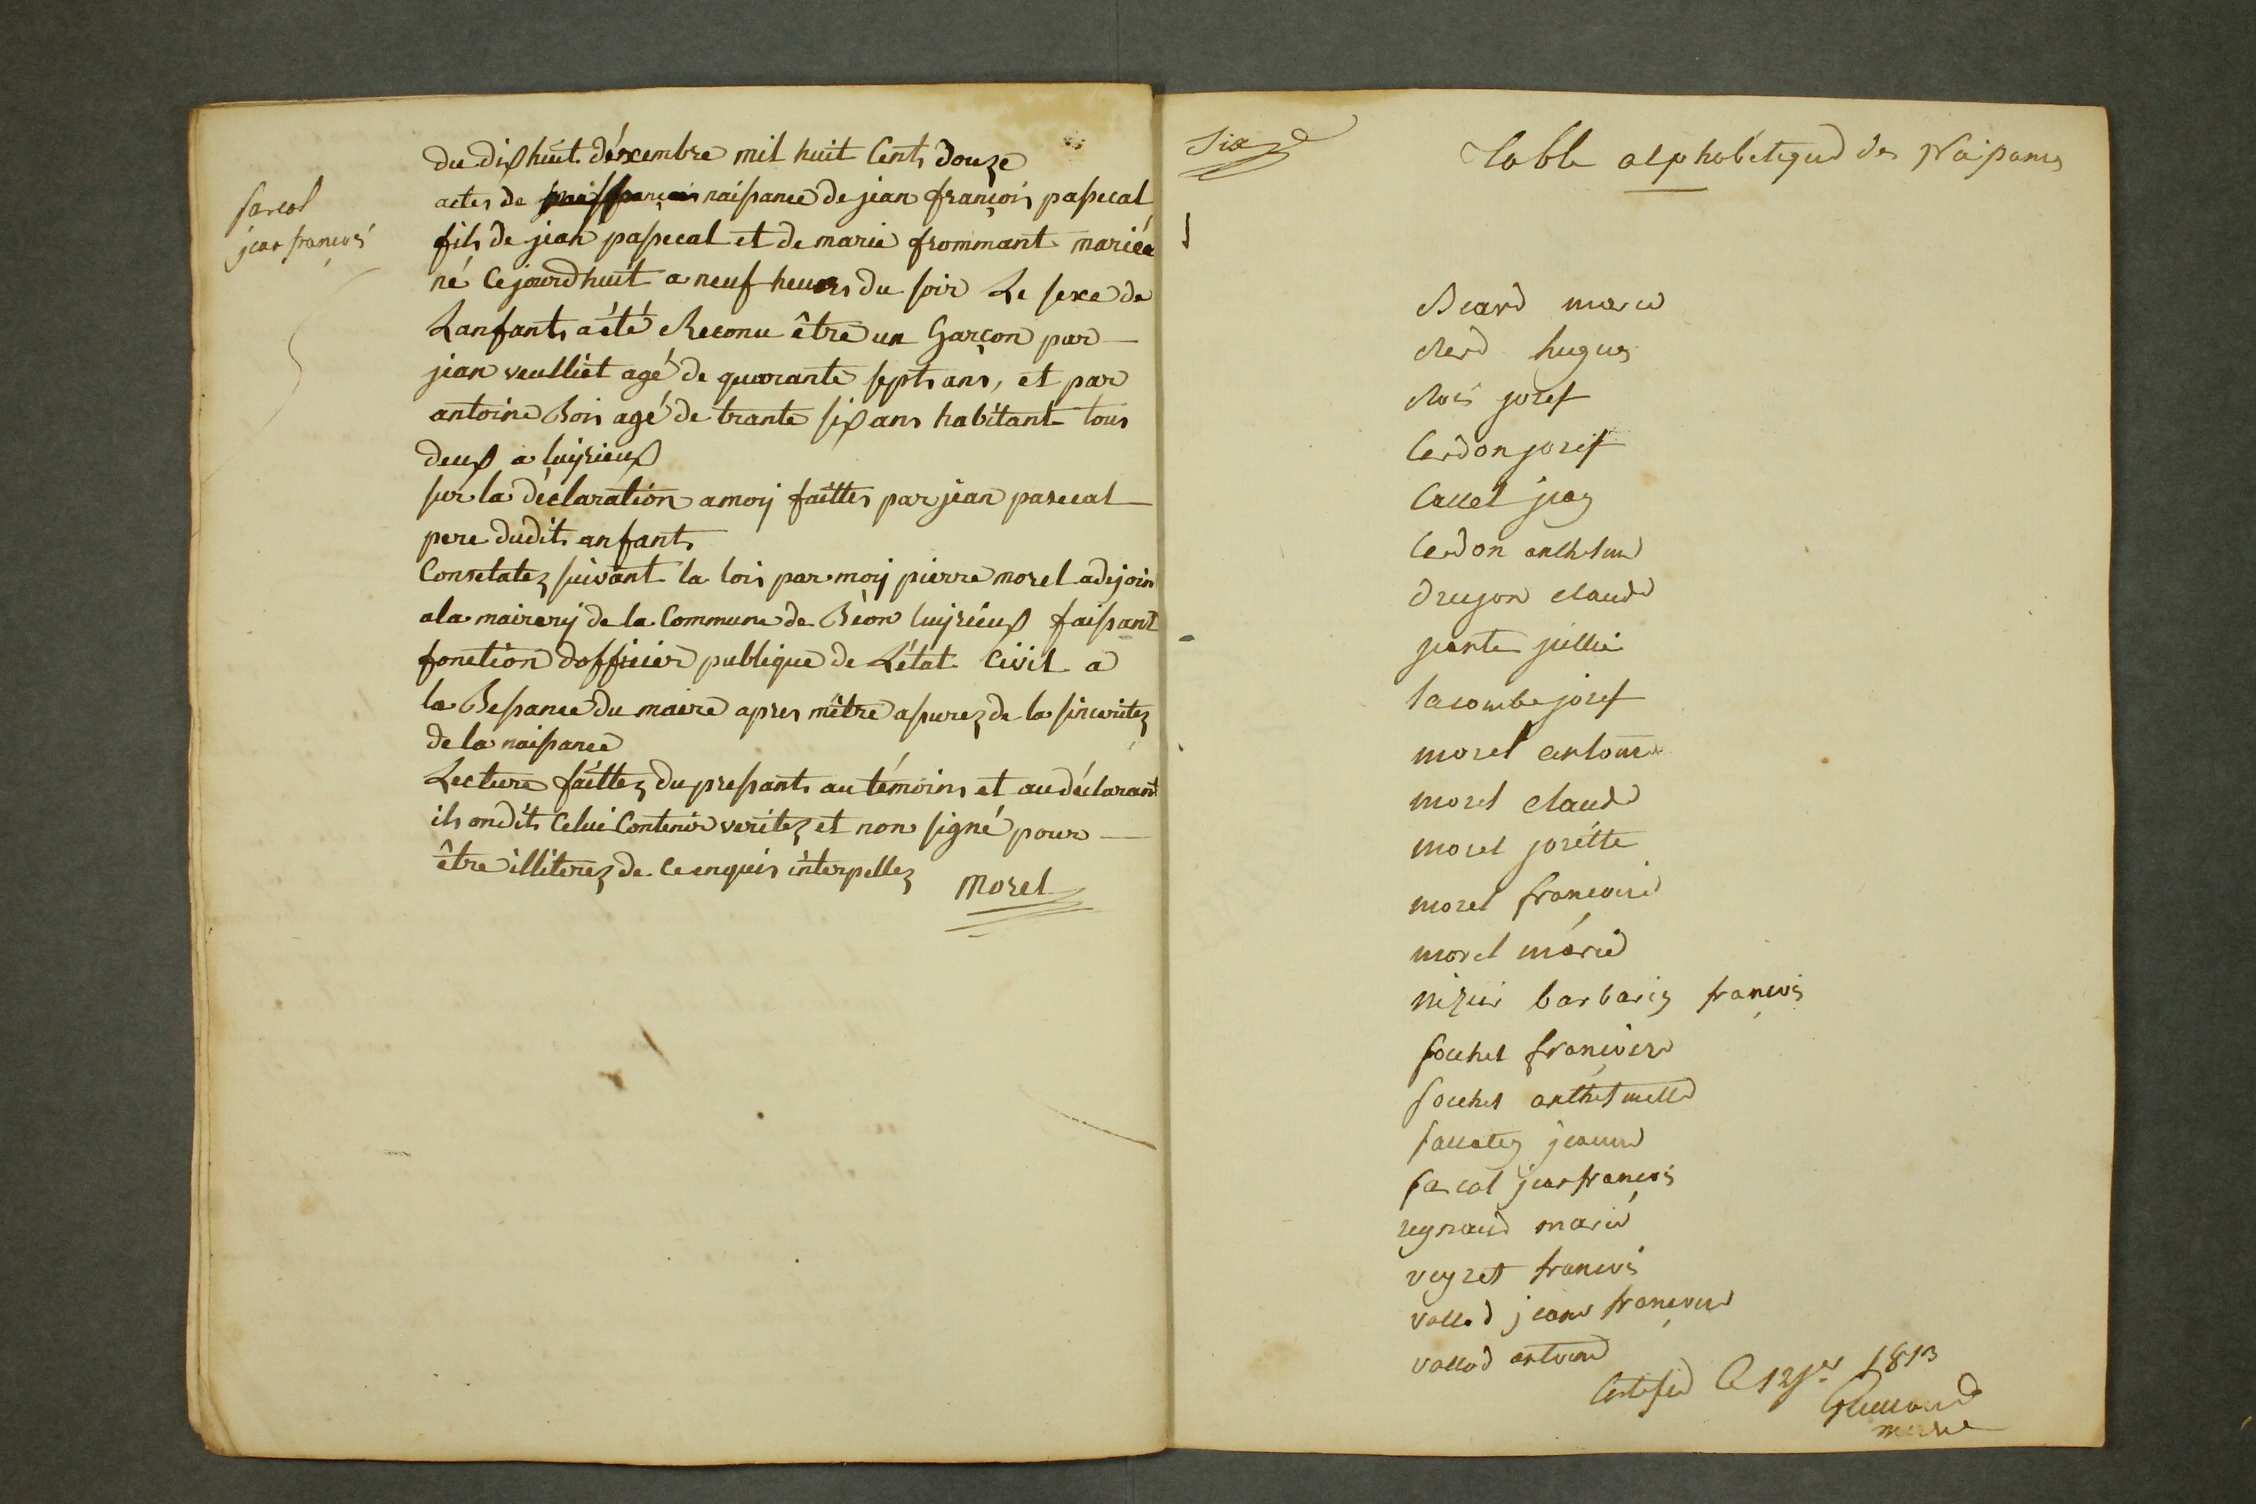 du dix huit déxcembre mil huit Cents douze
actes de naissance de jean françois passecal
fils de jean passecal et de marie frommant mariéé
né Cejourdhuit a neuf heures du soir Le sexe de
Lanfants a été Reconu être un Garçon par
jean veulliet agé de quarante septs ans, et par
antoine Bois agé de trante six ans habitant tous
deux a luijrieux
sur la déclaration a moij faittes par jean pasecal
pere dudits anfants
Consetatez suivant la lois par moij pierre morel adejoin
a la mairerij de la Commune de Béon luijrieux faissant
fonction dofficier publique de Létat Civil a
la Bessance du maire apres mêtre assurez de la sinceritez
de la naissance
Lecture faittez du pressants au témoins et au déclarant
ils ondits Celui Contenir veritez et non signé pour
être illiterez de Ce enquis interpellez
Morel
pascal
jean françois
Six
Table alphabétique des Naissances
Beard marie
Berd hugues
Bois josef
Cerdon josef
Callet jean
Cerdon anthelme
drujon claude
jeante jullie
lacombe josef
morel antoine
morel claude
morel josètte
morel françoise
morel marie
nizier barbarin françois
pochet françoise
pochet anthelmette
pallatez jeanne
pascal jean françois
regnaud marie
veyret françois
vallod jeane françoise
vallod antoine
Certifié le 12 j.er 1813
maire